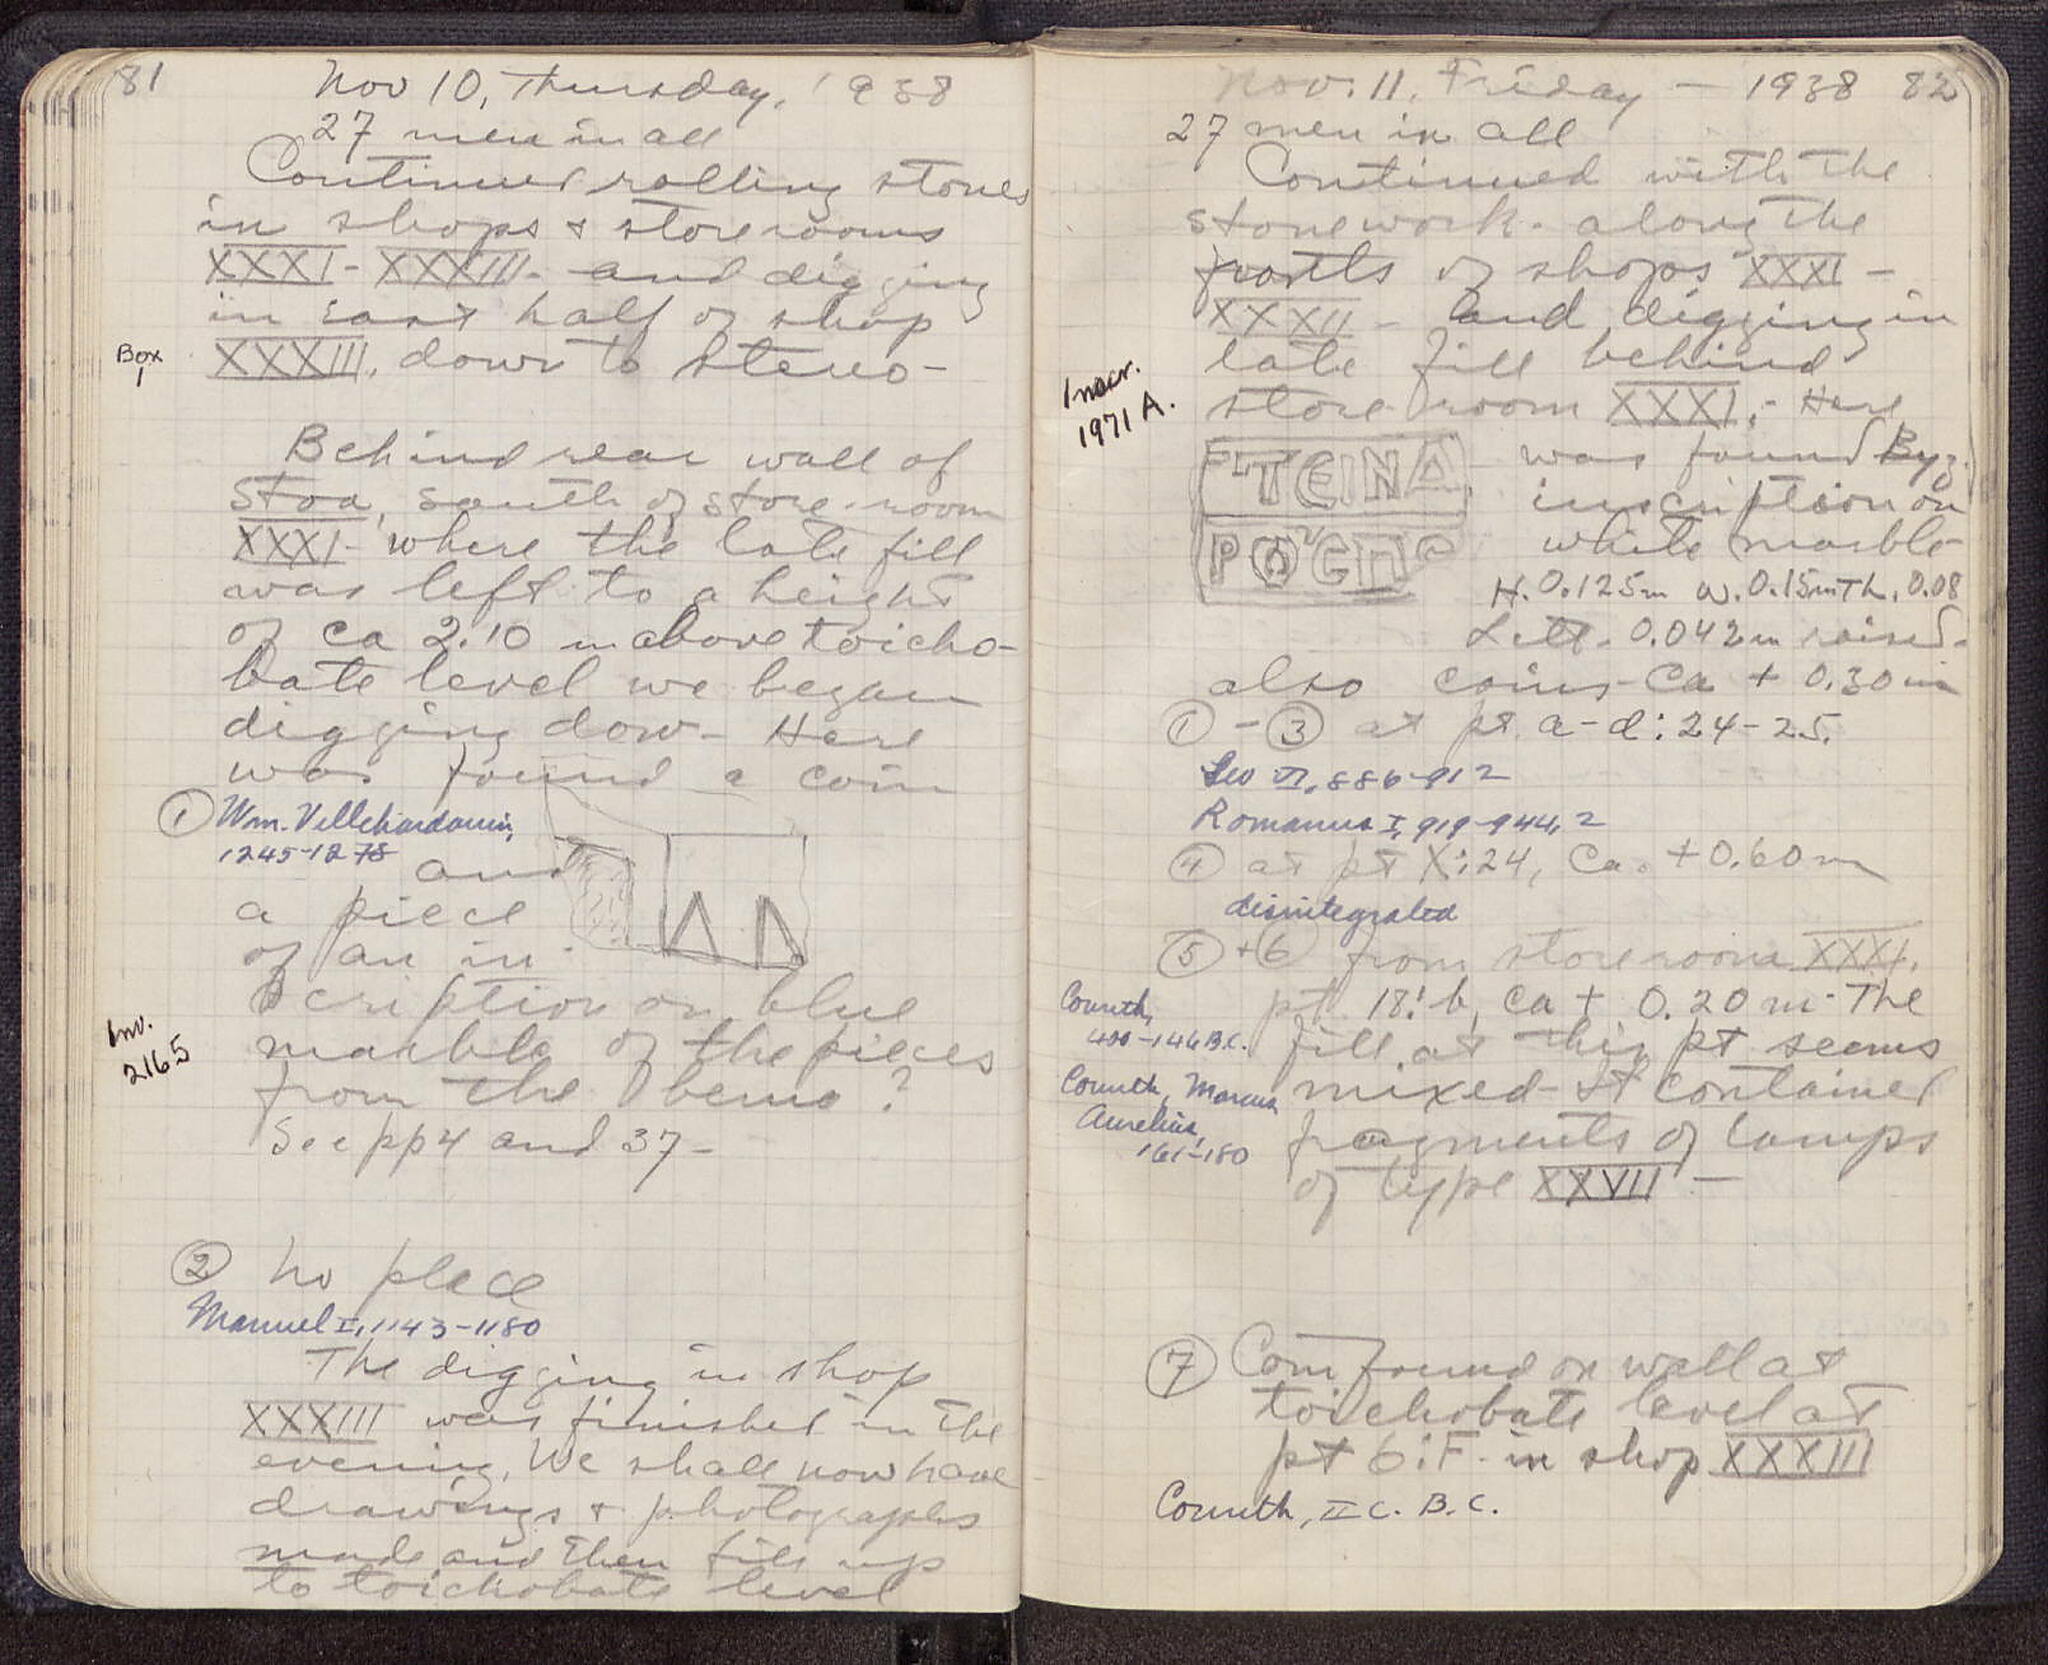 81
Nov 10, Thursday, 1938
27 men in all
Continued rolling stones
in shops & storerooms
XXXI - XXXIII - and digging
in east half of shop
Box
1
XXXIII. down to stereo-
Behind rear wall of
Stoa, south of store-room
XXXI - where the late fill
was left to a height
of ca 2.10 m above toicho-
bate level we began
digging dow- Here
was found a coin
① Wm. Villehardouin,
1245-1278
and
a piece
of an in-
scription on blue
marble of the pieces
from the bema?
Inv.
2165
See pp 4 and 37 -
② no place
Manuel I, 1143-1180
The digging in shop
XXXIII was finished in the
evening. We shall now have
drawings & photographs
made and then fill up
to toichobate level
Nov. 11, Friday - 1938 82
27 men in all
Continued with the
stonework - along the
fronts of shops XXXI -
XXXII - and digging in
late fill behind
Inscr.
1971 A.
store room XXXI, - Here
was found Byz.
inscription on
white marble
ΤΕΙΝΑ
H. 0.125m W. 0.15m Th. 0.08
Lett. 0.042m raised.
also coins - Ca + 0.30 m
① - ③ at pt. a-d: 24-25.
Leo VI, 886-912
Romanus I, 919-944, 2
④ at pt X: 24, Ca. +0.60 m
disintegrated
⑤ + ⑥ from storeroom XXXI,
pt. 18: b, ca + 0.20 m - The
Corinth,
400-146 B.C.
fill at this pt seems
Corinth, Marcus
Aurelius,
161-180
mixed - It contained
fragments of lamps
of type XXVII -
⑦ Coin found on wall at
toichobate level at
pt 6: F - in shop XXXIII
Corinth, II C. B.C.